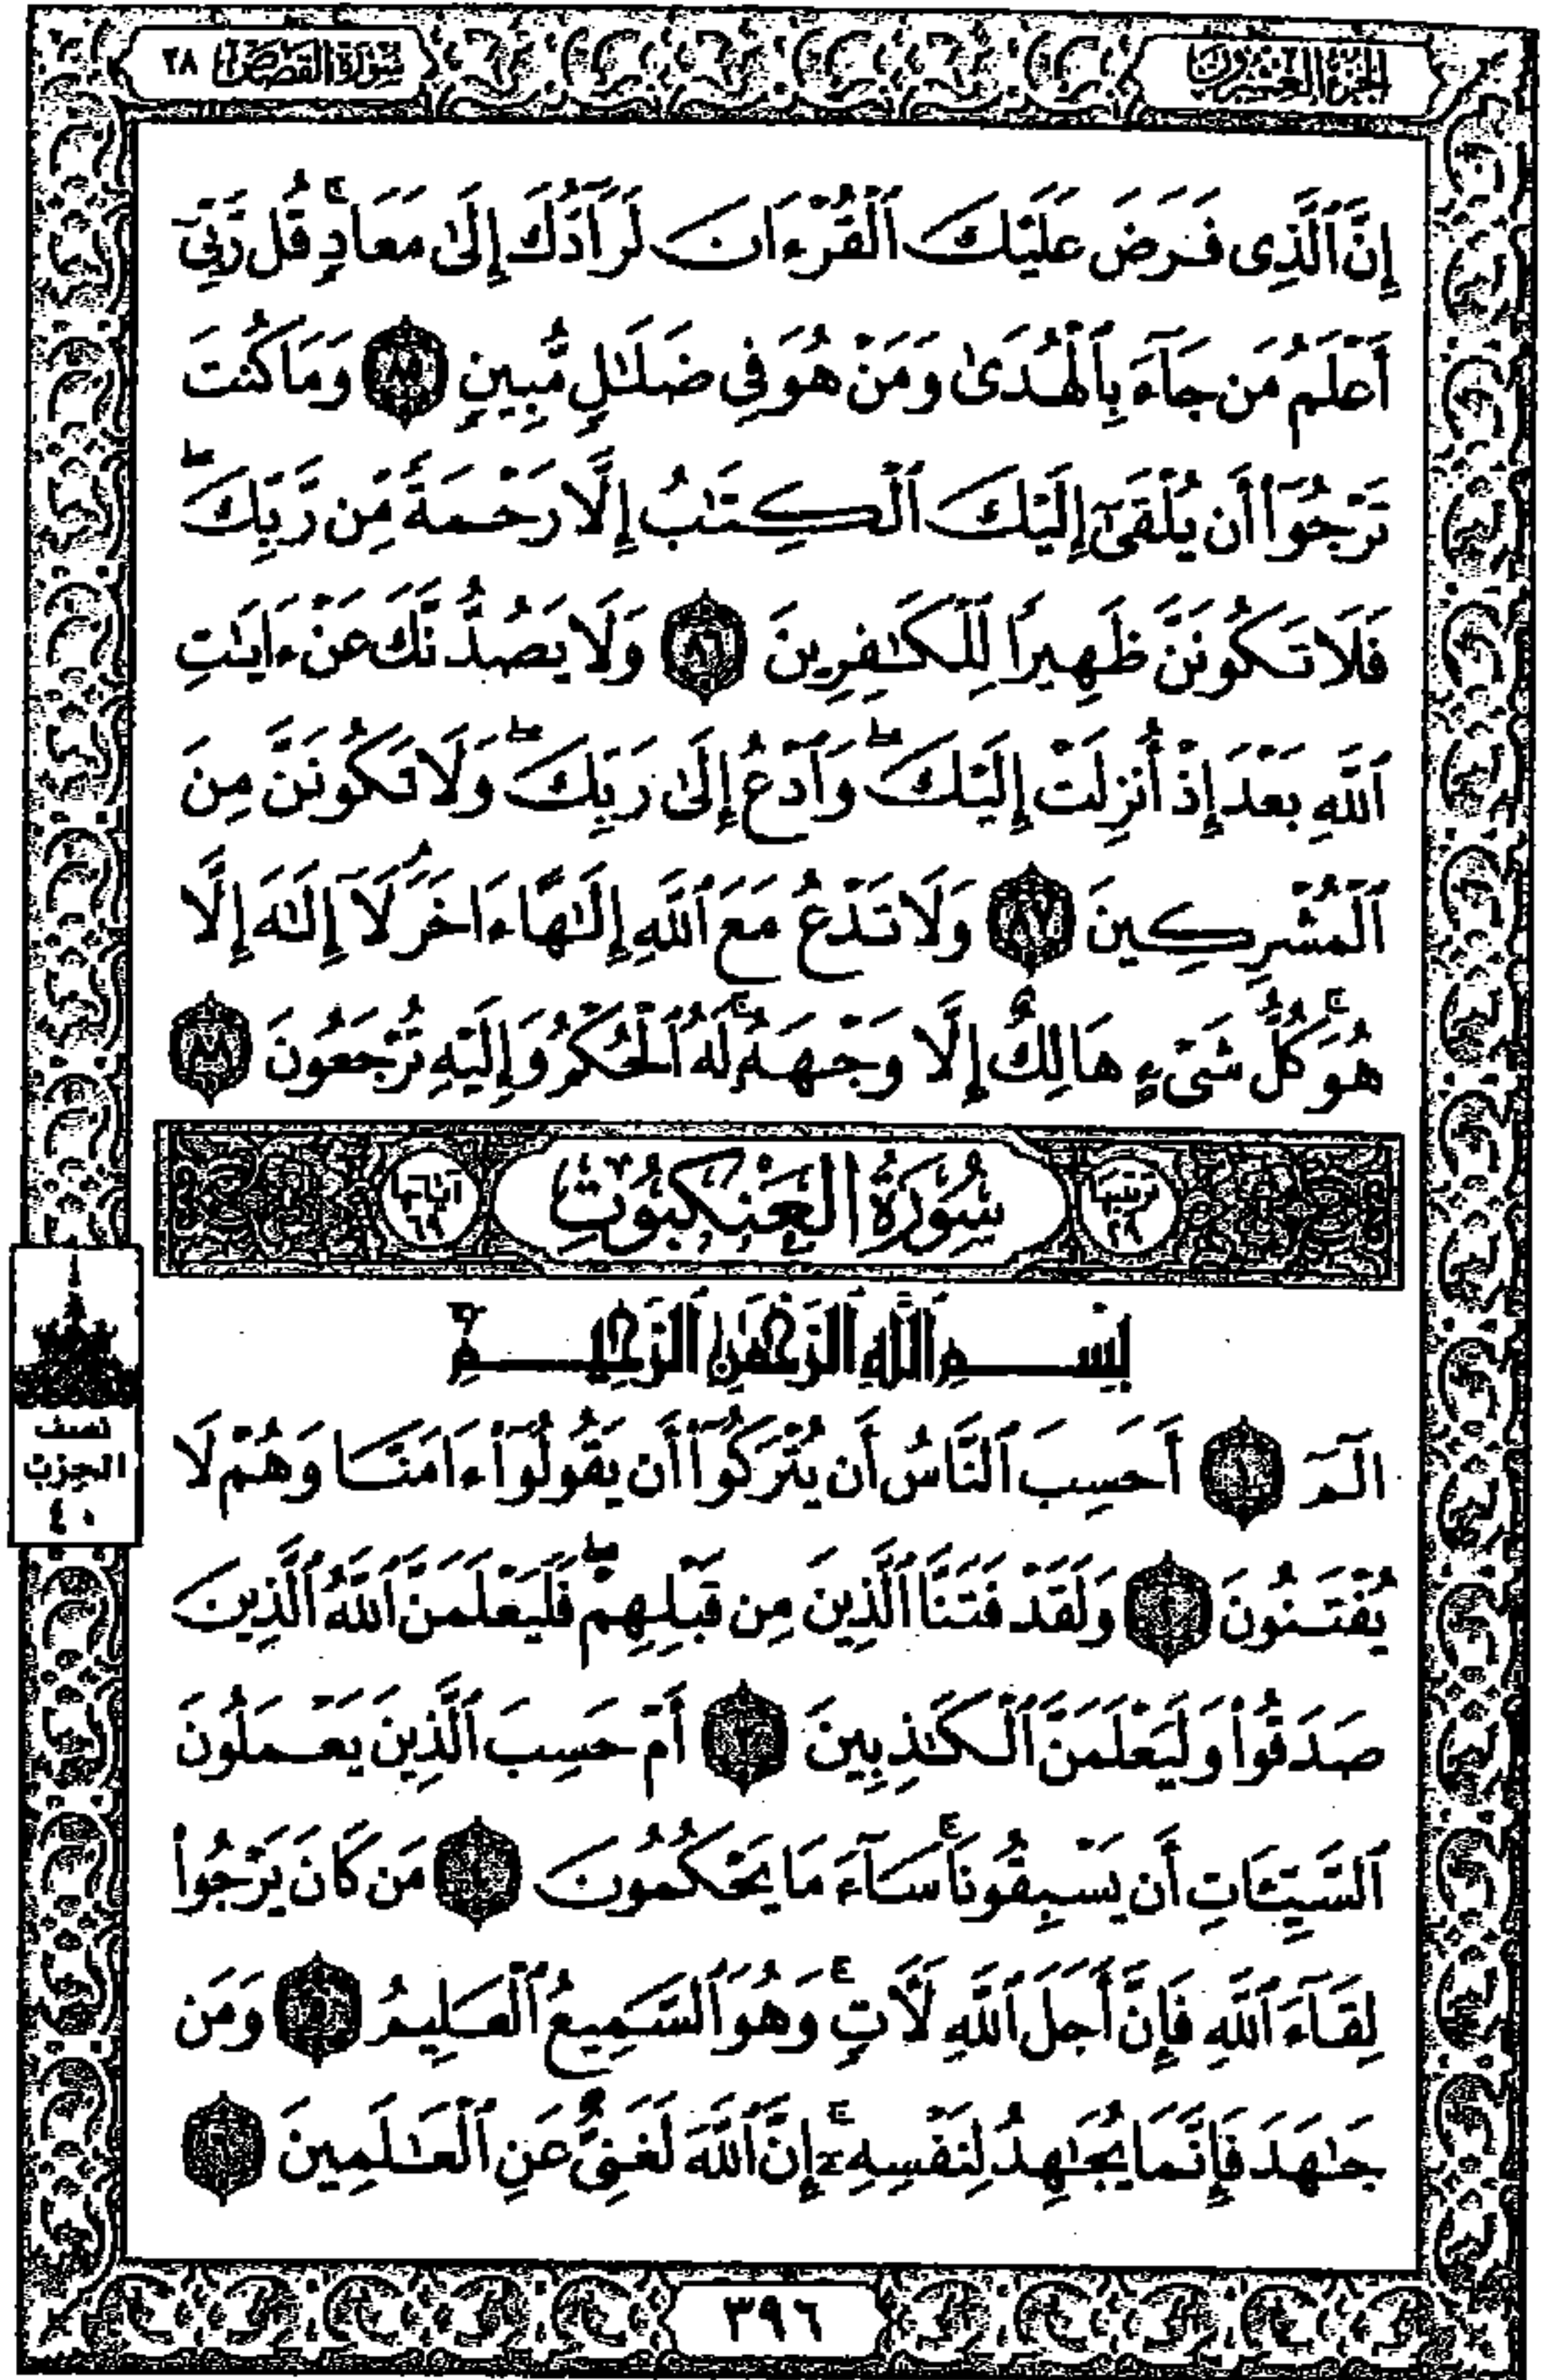 الجزء العشرون
سورة القصص ٢٨
إِنَّ ٱلَّذِى فَرَضَ عَلَيْكَ ٱلْقُرْءَانَ لَرَآدُّكَ إِلَىٰ مَعَادٍۚ قُل رَّبِّىٓ
أَعْلَمُ مَن جَآءَ بِٱلْهُدَىٰ وَمَنْ هُوَ فِى ضَلَـٰلٍ مُّبِينٍ ٨٥ وَمَا كُنتَ
تَرْجُوٓا۟ أَن يُلْقَىٰٓ إِلَيْكَ ٱلْكِتَـٰبُ إِلَّا رَحْمَةً مِّن رَّبِّكَۖ
فَلَا تَكُونَنَّ ظَهِيرًا لِّلْكَـٰفِرِينَ ٨٦ وَلَا يَصُدُّنَّكَ عَنْ ءَايَـٰتِ
ٱللَّهِ بَعْدَ إِذْ أُنزِلَتْ إِلَيْكَۖ وَٱدْعُ إِلَىٰ رَبِّكَۖ وَلَا تَكُونَنَّ مِنَ
ٱلْمُشْرِكِينَ ٨٧ وَلَا تَدْعُ مَعَ ٱللَّهِ إِلَـٰهًا ءَاخَرَۘ لَآ إِلَـٰهَ إِلَّا
هُوَۚ كُلُّ شَىْءٍ هَالِكٌ إِلَّا وَجْهَهُۥۚ لَهُ ٱلْحُكْمُ وَإِلَيْهِ تُرْجَعُونَ ٨٨
ترتيبها ٢٩ سُورَةُ العَنكَبُوتِ آياتها ٦٩
بِسْمِ ٱللَّهِ ٱلرَّحْمَـٰنِ ٱلرَّحِيمِ
الٓمٓ ١ أَحَسِبَ ٱلنَّاسُ أَن يُتْرَكُوٓا۟ أَن يَقُولُوٓا۟ ءَامَنَّا وَهُمْ لَا
يُفْتَنُونَ ٢ وَلَقَدْ فَتَنَّا ٱلَّذِينَ مِن قَبْلِهِمْۖ فَلَيَعْلَمَنَّ ٱللَّهُ ٱلَّذِينَ
صَدَقُوا۟ وَلَيَعْلَمَنَّ ٱلْكَـٰذِبِينَ ٣ أَمْ حَسِبَ ٱلَّذِينَ يَعْمَلُونَ
ٱلسَّيِّـَٔاتِ أَن يَسْبِقُونَاۚ سَآءَ مَا يَحْكُمُونَ ٤ مَن كَانَ يَرْجُوا۟
لِقَآءَ ٱللَّهِ فَإِنَّ أَجَلَ ٱللَّهِ لَـَٔاتٍۚ وَهُوَ ٱلسَّمِيعُ ٱلْعَلِيمُ ٥ وَمَن
جَـٰهَدَ فَإِنَّمَا يُجَـٰهِدُ لِنَفْسِهِۦٓۚ إِنَّ ٱللَّهَ لَغَنِىٌّ عَنِ ٱلْعَـٰلَمِينَ ٦
نصف
الحزب
٤٠
٣٩٦